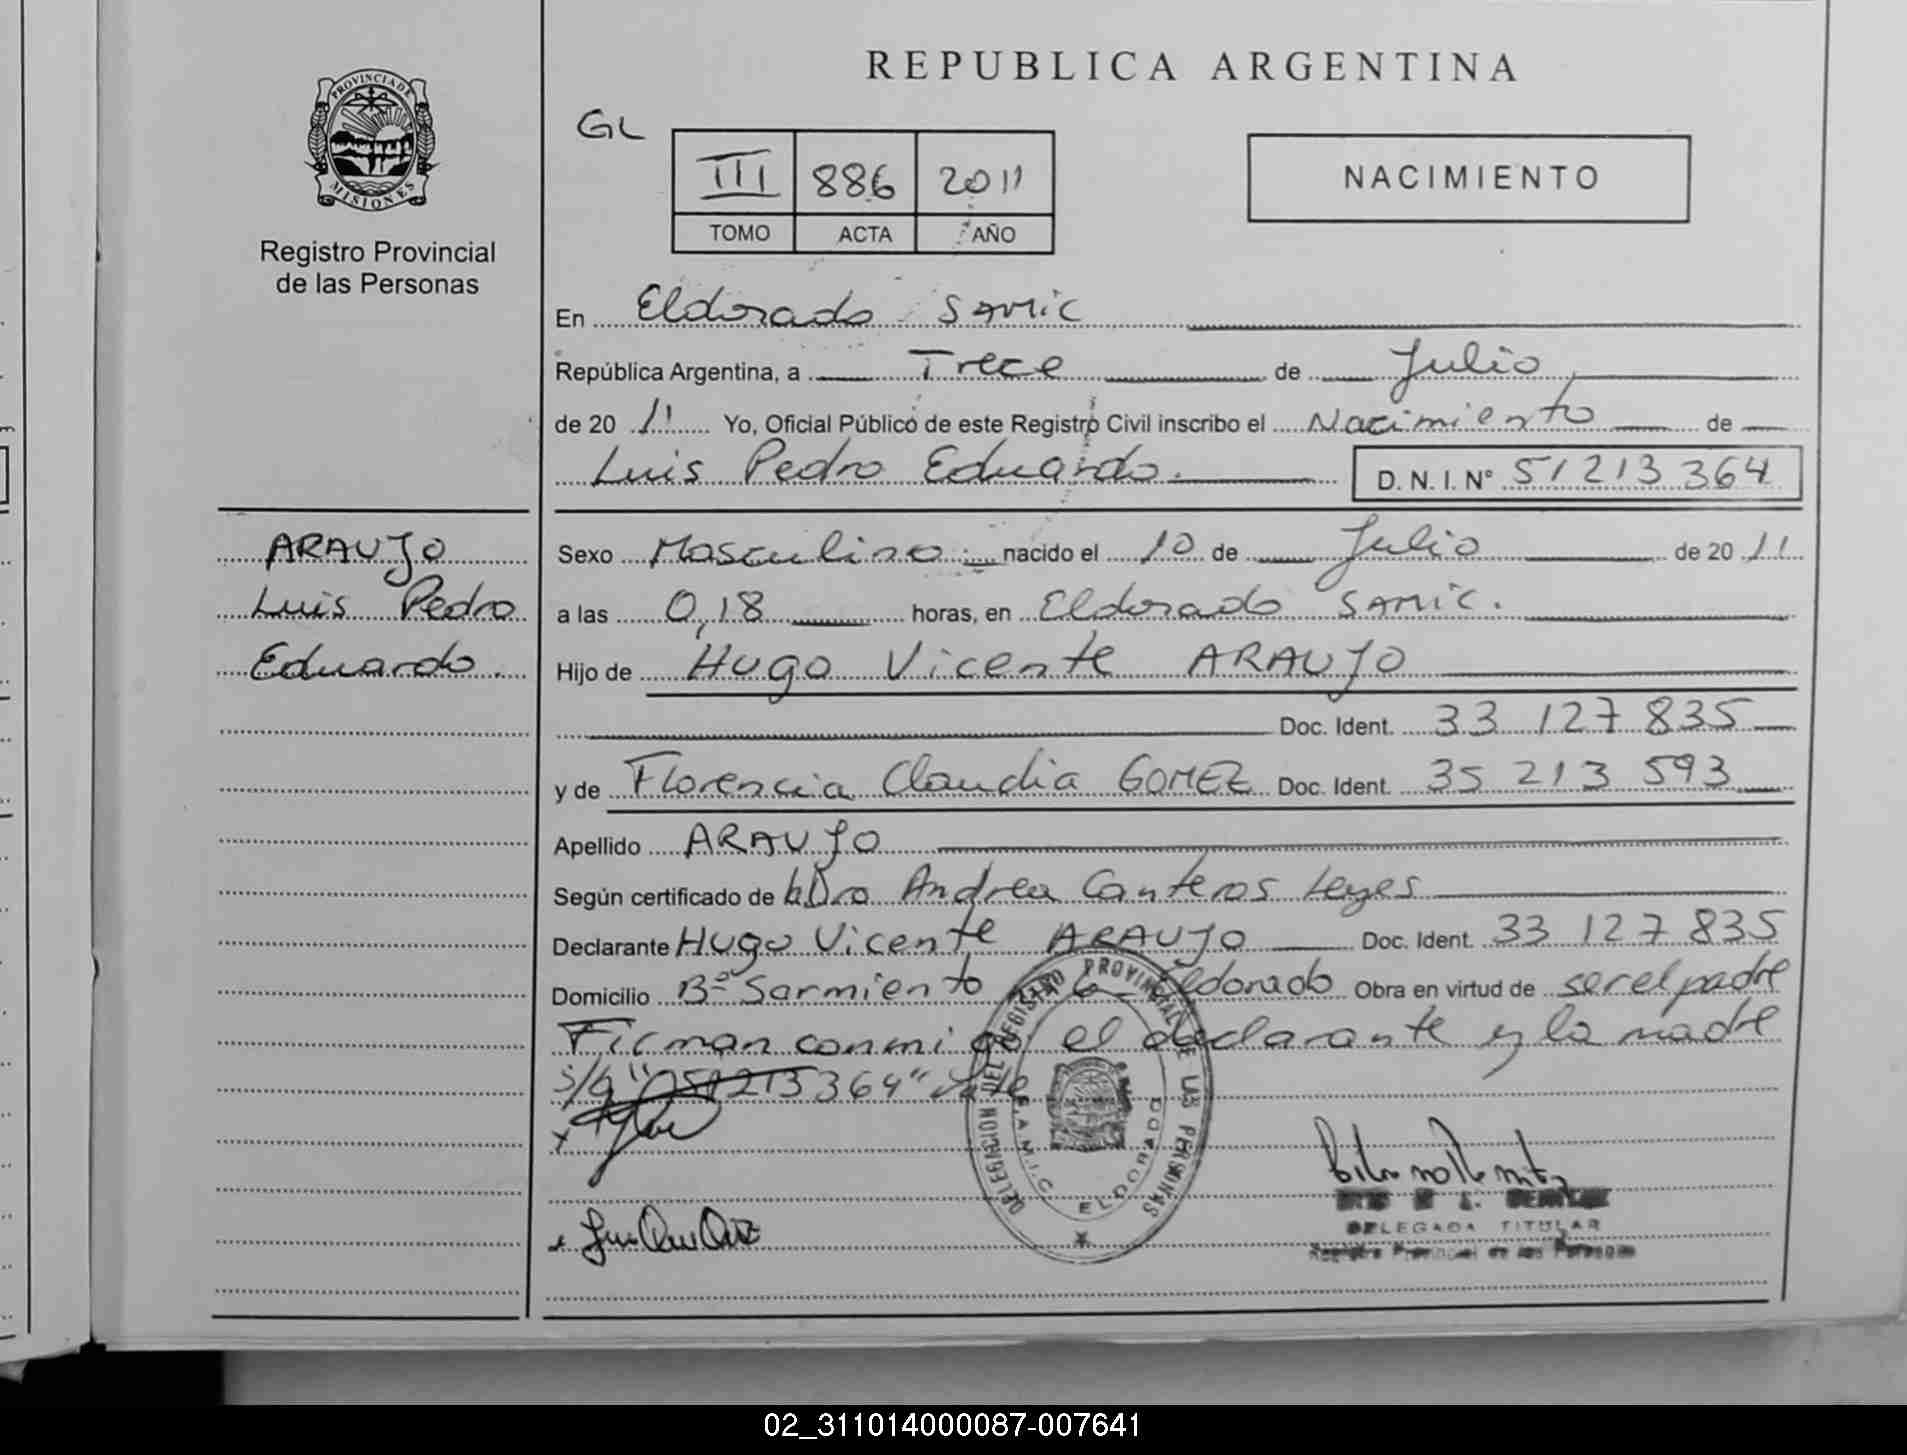 PROVINCIA DE
MISIONES
Registro Provincial
de las Personas
ARAUJO
Luis Pedro
Eduardo.
REPUBLICA ARGENTINA
GL
III 886 2011
TOMO ACTA AÑO
NACIMIENTO
En Eldorado SAMIC
República Argentina, a Trece de Julio
de 20 11 Yo, Oficial Público de este Registro Civil inscribo el Nacimiento de
Luis Pedro Eduardo. D. N. I. N° 51 213 364
Sexo Masculino nacido el 10 de Julio de 20 11
a las 0,18 horas, en Eldorado SAMIC.
Hijo de Hugo Vicente ARAUJO
Doc. Ident. 33 127 835
y de Florencia Claudia GOMEZ Doc. Ident. 35 213 593
Apellido ARAUJO
Según certificado de Dra Andrea Canteros Leyes
Declarante Hugo Vicente ARAUJO Doc. Ident. 33 127 835
Domicilio B° Sarmiento Eldorado Obra en virtud de ser el padre
Firman conmigo el declarante y la madre
"51213364" Vale
DELEGACION DEL REGISTRO PROVINCIAL DE LAS PERSONAS
S.A.M.I.C. ELDORADO
DELEGADA TITULAR
Registro Provincial de las Personas
02_311014000087-007641